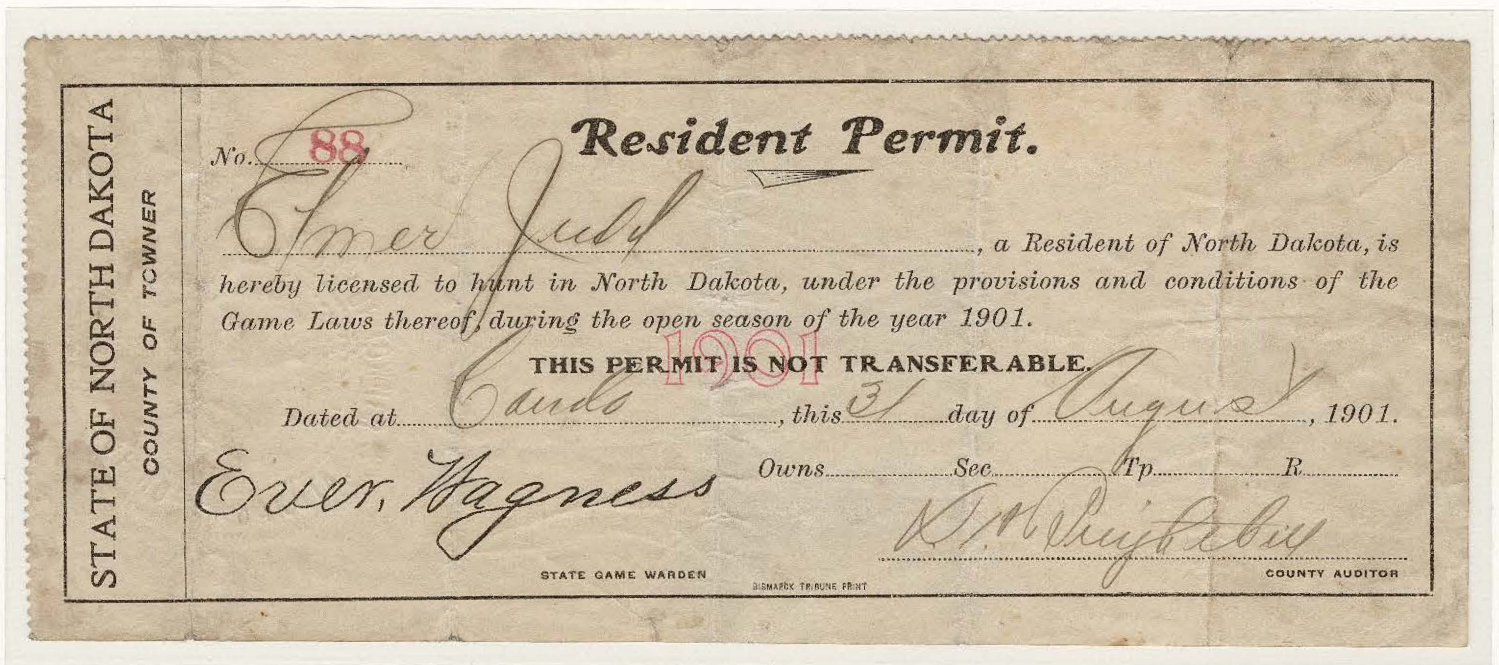 STATE OF NORTH DAKOTA
COUNTY OF TOWNER
No. 88
Resident Permit.
Elmer Judd, a Resident of North Dakota, is
hereby licensed to hunt in North Dakota, under the provisions and conditions of the
Game Laws thereof, during the open season of the year 1901.
1901
THIS PERMIT IS NOT TRANSFERABLE.
Dated at Cando, this 31 day of August, 1901.
Owns Sec. Tp. R
Ever. Wagness
STATE GAME WARDEN
BISMARCK TRIBUNE PRINT
COUNTY AUDITOR